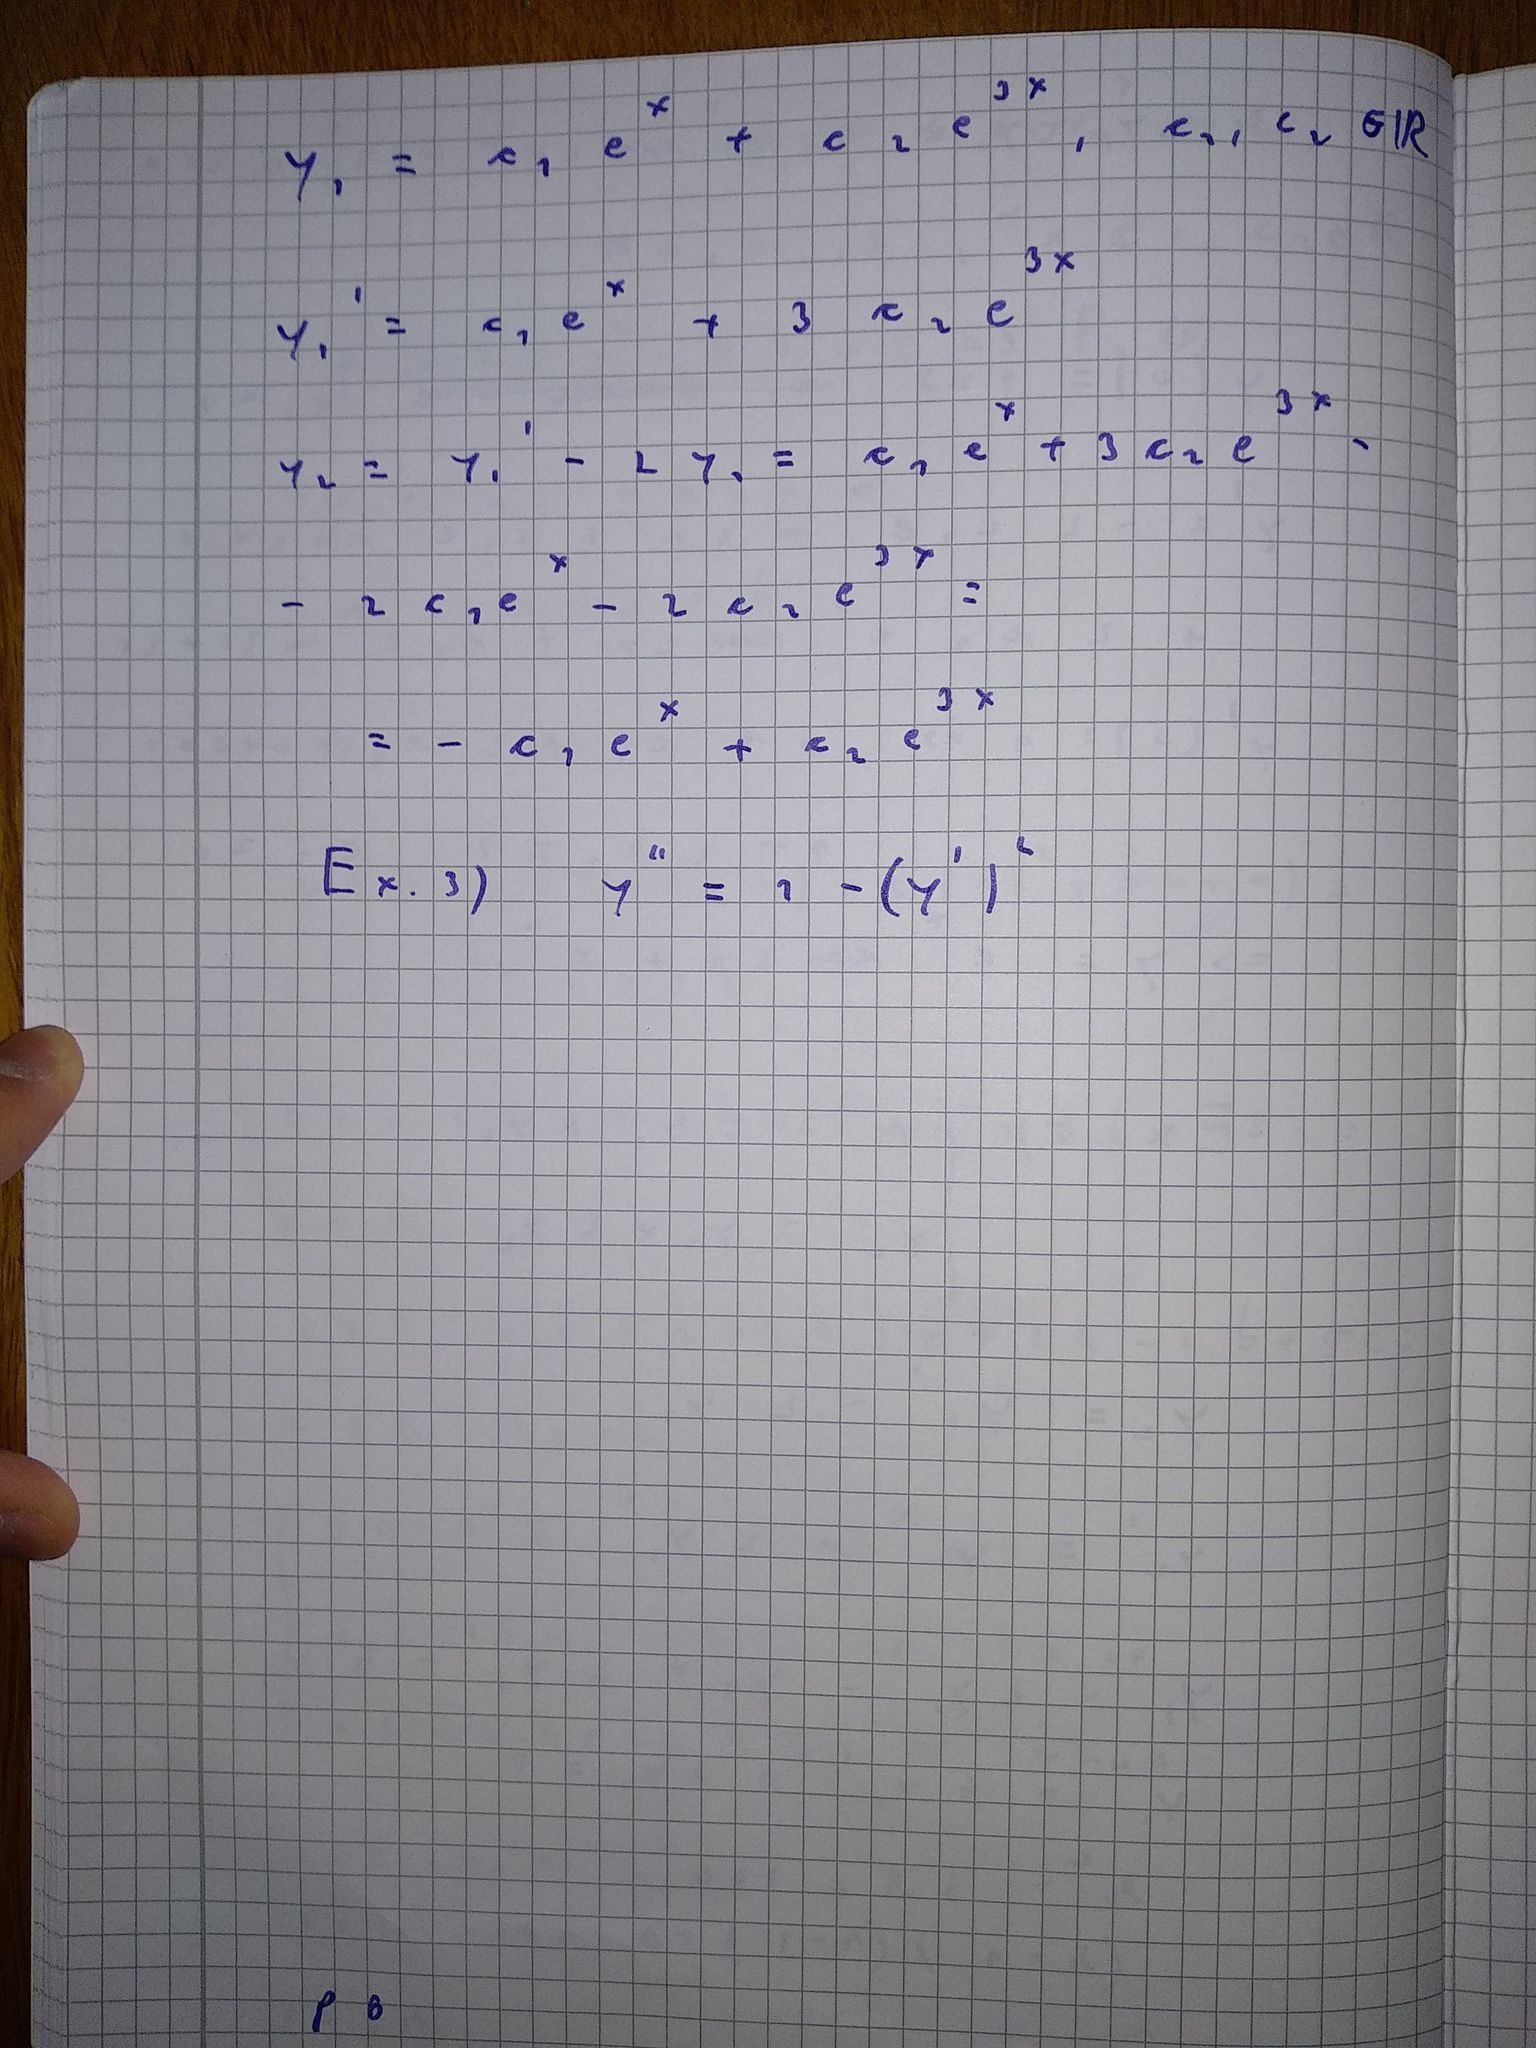 y₁ = c₁ eˣ + c₂ e³ˣ, c₁, c₂ ∈ ℝ
y₁' = c₁ eˣ + 3 c₂ e³ˣ
y₂ = y₁' - 2 y₁ = c₁ eˣ + 3 c₂ e³ˣ -
- 2 c₁ eˣ - 2 c₂ e³ˣ =
= - c₁ eˣ + c₂ e³ˣ
Ex. 3) y'' = 1 - (y')²
p 8